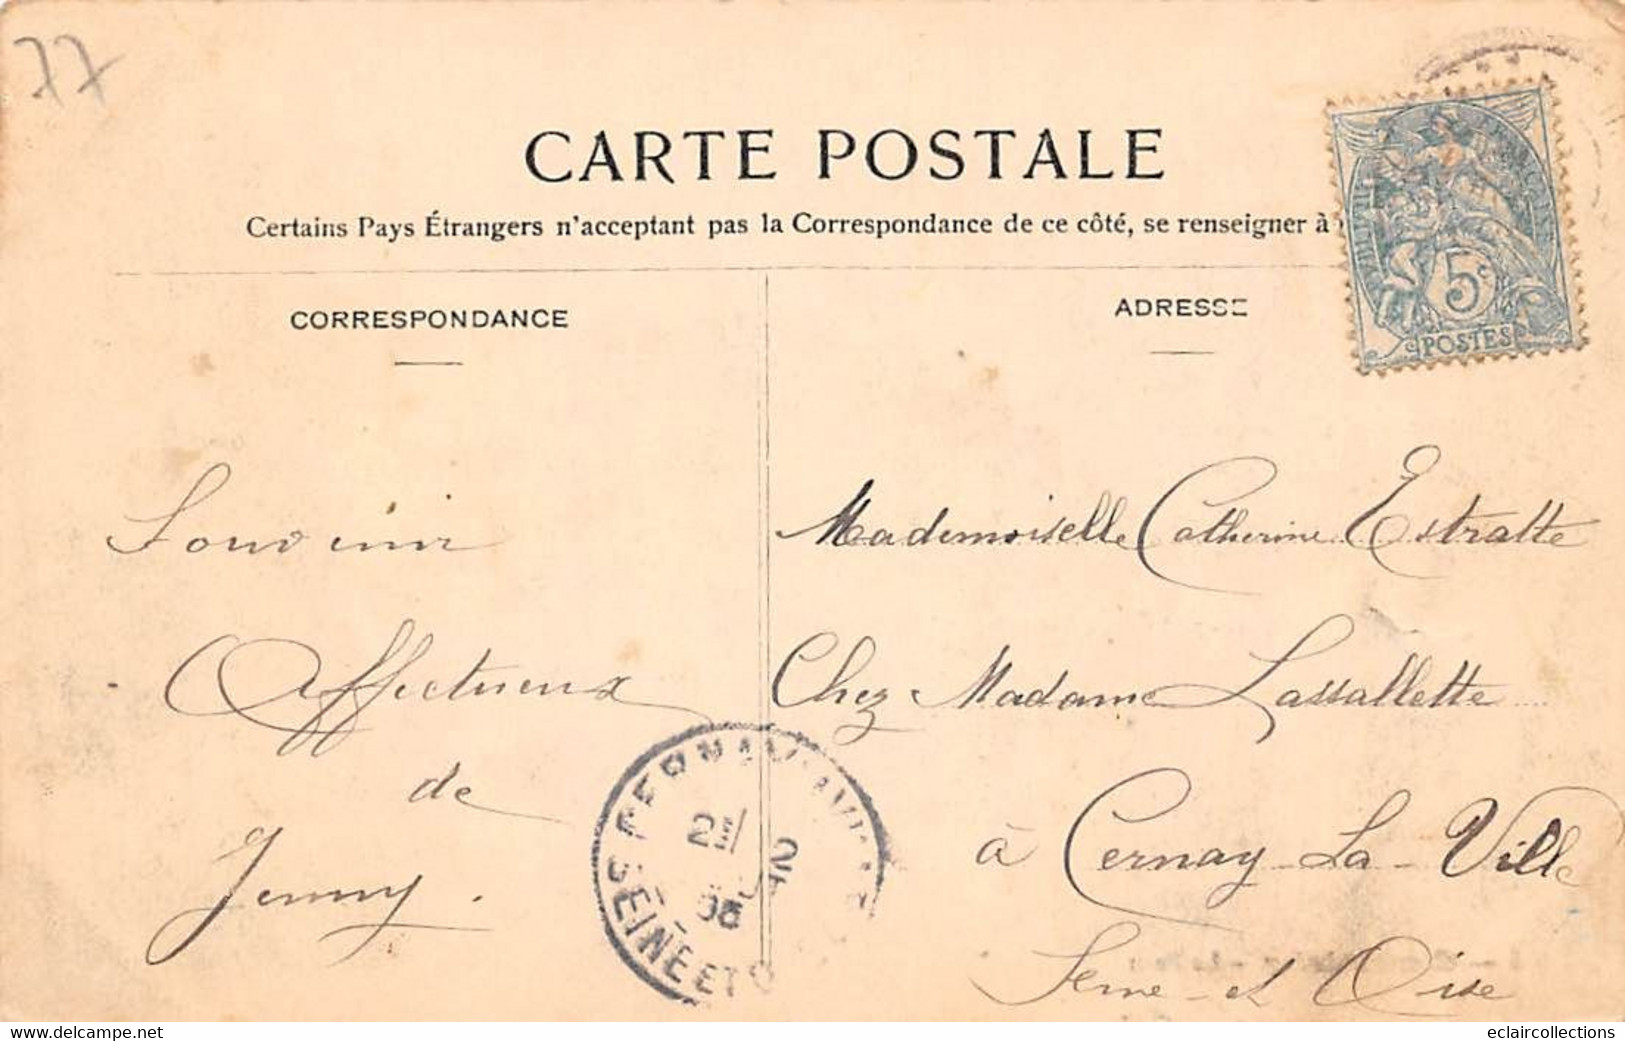 77
CARTE POSTALE
Certains Pays Étrangers n'acceptant pas la Correspondance de ce côté, se renseigner à
CORRESPONDANCE
ADRESSE
5c
POSTES
Souvenir
Affectueux
de
Jenny.
Mademoiselle Catherine Estratte
Chez Madame Lassallette
à Cernay-La-Ville
Seine-et Oise
SEINE ET O
www.delcampe.net
eclaircollections